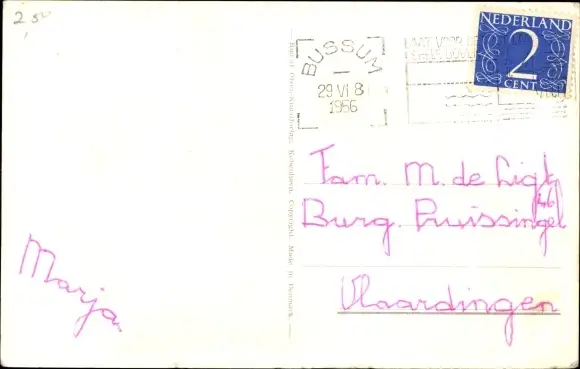 2.50
BUSSUM
29 VI 8
1956
NEDERLAND
2
CENT
Fam. M. de Ligt
46
Burg. Pruissingel
Vlaardingen
Marja
København. Copyright. Made in Denmark